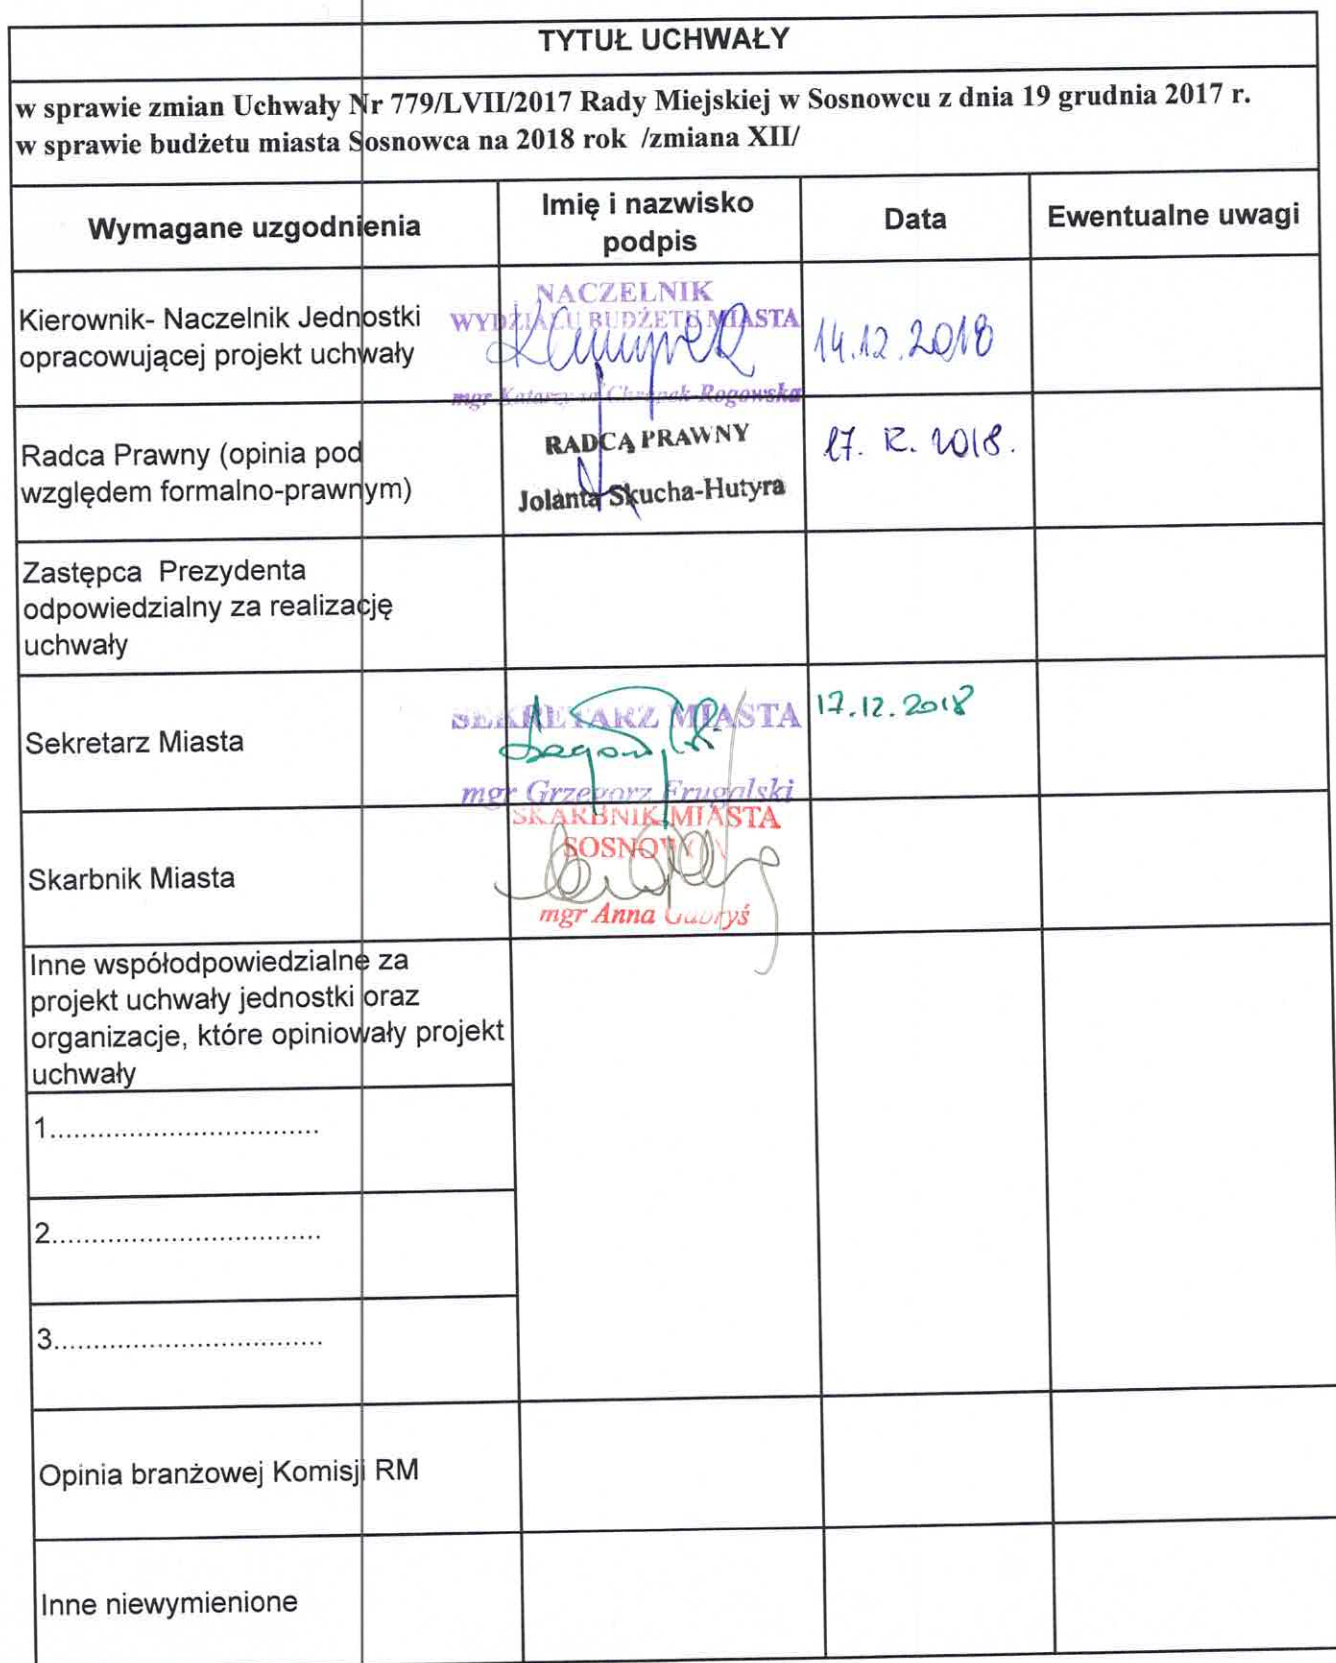 TYTUŁ UCHWAŁY
w sprawie zmian Uchwały Nr 779/LVII/2017 Rady Miejskiej w Sosnowcu z dnia 19 grudnia 2017 r.
w sprawie budżetu miasta Sosnowca na 2018 rok /zmiana XII/
Wymagane uzgodnienia
Imię i nazwisko
podpis
Data
Ewentualne uwagi
Kierownik- Naczelnik Jednostki
opracowującej projekt uchwały
NACZELNIK
WYDZIAŁU BUDŻETU MIASTA
mgr Katarzyna Chrapek-Rogowska
14.12.2018
Radca Prawny (opinia pod
względem formalno-prawnym)
RADCA PRAWNY
Jolanta Skucha-Hutyra
17. 12. 2018.
Zastępca Prezydenta
odpowiedzialny za realizację
uchwały
Sekretarz Miasta
SEKRETARZ MIASTA
mgr Grzegorz Frugalski
17.12.2018
Skarbnik Miasta
SKARBNIK MIASTA
mgr Anna
Inne współodpowiedzialne za
projekt uchwały jednostki oraz
organizacje, które opiniowały projekt
uchwały
1..................................
2..................................
3..................................
Opinia branżowej Komisji RM
Inne niewymienione